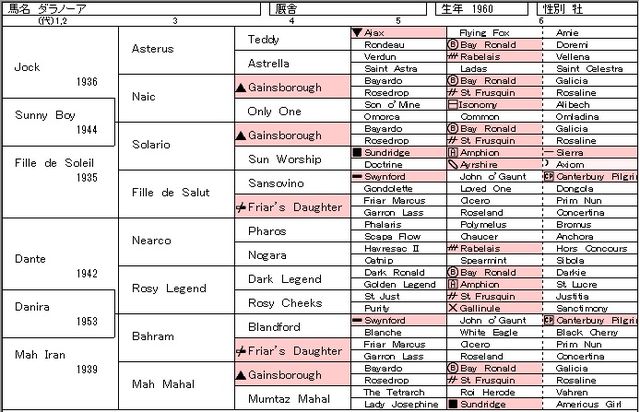 馬名 ダラノーア
厩舎
生年 1960
性別 牡
(代)1,2
3
4
5
6
Jock
1936
Sunny Boy
1944
Fille de Soleil
1935
Dante
1942
Danira
1953
Mah Iran
1939
Asterus
Naic
Solario
Fille de Salut
Nearco
Rosy Legend
Bahram
Mah Mahal
Teddy
Astrella
▲ Gainsborough
Only One
▲ Gainsborough
Sun Worship
Sansovino
Friar's Daughter
Pharos
Nogara
Dark Legend
Rosy Cheeks
Blandford
Friar's Daughter
▲ Gainsborough
Mumtaz Mahal
▼ Ajax
Rondeau
Verdun
Saint Astra
Bayardo
Rosedrop
Son o'Mine
Omorca
Bayardo
Rosedrop
■ Sundridge
Doctrine
Swynford
Gondolette
Friar Marcus
Garron Lass
Phalaris
Scapa Flow
Havresac II
Catnip
Dark Ronald
Golden Legend
St Just
Purity
Swynford
Blanche
Friar Marcus
Garron Lass
Bayardo
Rosedrop
The Tetrarch
Lady Josephine
Flying Fox
Ⓑ Bay Ronald
Rabelais
Ladas
Ⓑ Bay Ronald
St Frusquin
Isonomy
Common
Ⓑ Bay Ronald
St Frusquin
Amphion
Ayrshire
John o'Gaunt
Loved One
Cicero
Roseland
Polymelus
Chaucer
Rabelais
Spearmint
Ⓑ Bay Ronald
Amphion
St Frusquin
Gallinule
John o'Gaunt
White Eagle
Cicero
Roseland
Ⓑ Bay Ronald
St Frusquin
Roi Herode
■ Sundridge
Amie
Doremi
Vellena
Saint Celestra
Galicia
Rosaline
Alibech
Omladina
Galicia
Rosaline
Sierra
Axiom
Canterbury Pilgri
Dongola
Prim Nun
Concertina
Bromus
Anchora
Hors Concours
Sibola
Darkie
St Lucre
Justitia
Sanctimony
Canterbury Pilgri
Black Cherry
Prim Nun
Concertina
Galicia
Rosaline
Vahren
Americus Girl